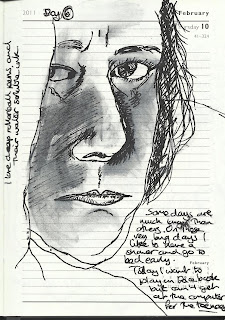 2011
Day 6
February
Thursday 10
41-324
I love cheap rollerball pens, and
their water soluble ink
Some days are
much longer than
others. On those
very long days I
like to have a
shower and go to
bed early.
February
Today I want to
play on Facebook
but can't get
at the computer
for the teenager